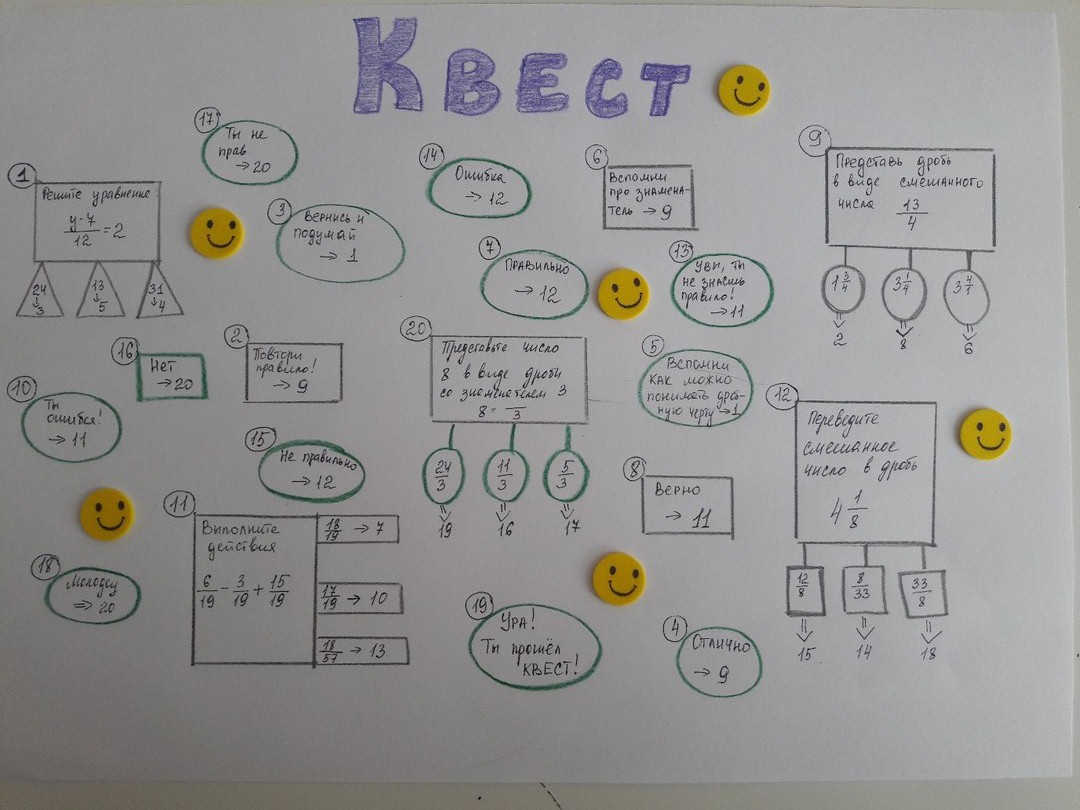 КВЕСТ
1
Решите уравнение
y-7/12 = 2
24 → 3
13 → 5
31 → 4
17
Ты не
прав
→ 20
3
Вернись и
подумай
→ 1
14
Ошибка
→ 12
6
Вспомни
про знамена-
тель → 9
9
Представь дробь
в виде смешанного
числа 13/4
1 3/4
3 1/4
3 4/1
2
8
6
7
Правильно
→ 12
13
Увы, ты
не знаешь
правило!
→ 11
16
Нет
→ 20
2
Повтори
правило!
→ 9
20
Представьте число
8 в виде дроби
со знаменателем 3
8 = /3
24/3
11/3
5/3
19
16
17
5
Вспомни
как можно
понимать дроб-
ную черту → 1
12
Переведите
смешанное
число в дробь
4 1/8
12/8
8/33
33/8
15
14
18
10
Ты
ошибся!
→ 11
15
Не правильно
→ 12
8
Верно
→ 11
11
Выполните
действия
6/19 - 3/19 + 15/19
18/19 → 7
17/19 → 10
18/57 → 13
18
Молодец
⇒ 20
19
Ура!
Ты прошёл
КВЕСТ!
4
Отлично
→ 9